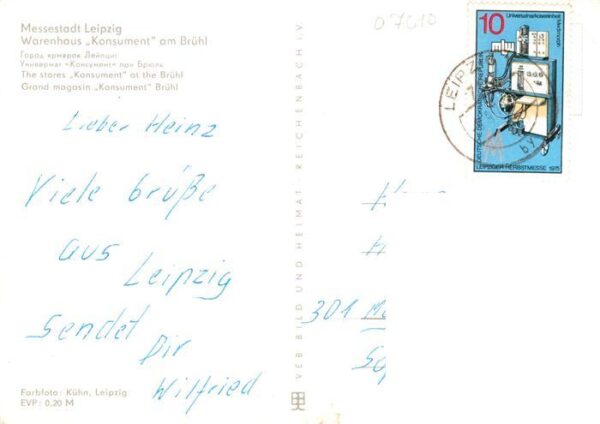 Messestadt Leipzig
Warenhaus „Konsument" am Brühl
Город ярмарок Лейпциг
Универмаг «Консумент» при Брюле
The stores „Konsument" at the Brühl
Grand magasin „Konsument" Brühl
Lieber Heinz
Viele Grüße
aus
Leipzig
sendet
Dir
Wilfried
Farbfoto: Kühn, Leipzig
EVP: 0,20 M
VEB BILD UND HEIMAT REICHENBACH i. V.
07C10
10
DEUTSCHE DEMOKRATISCHE REPUBLIK
LEIPZIGER HERBSTMESSE 1975
LEIPZ
by
301